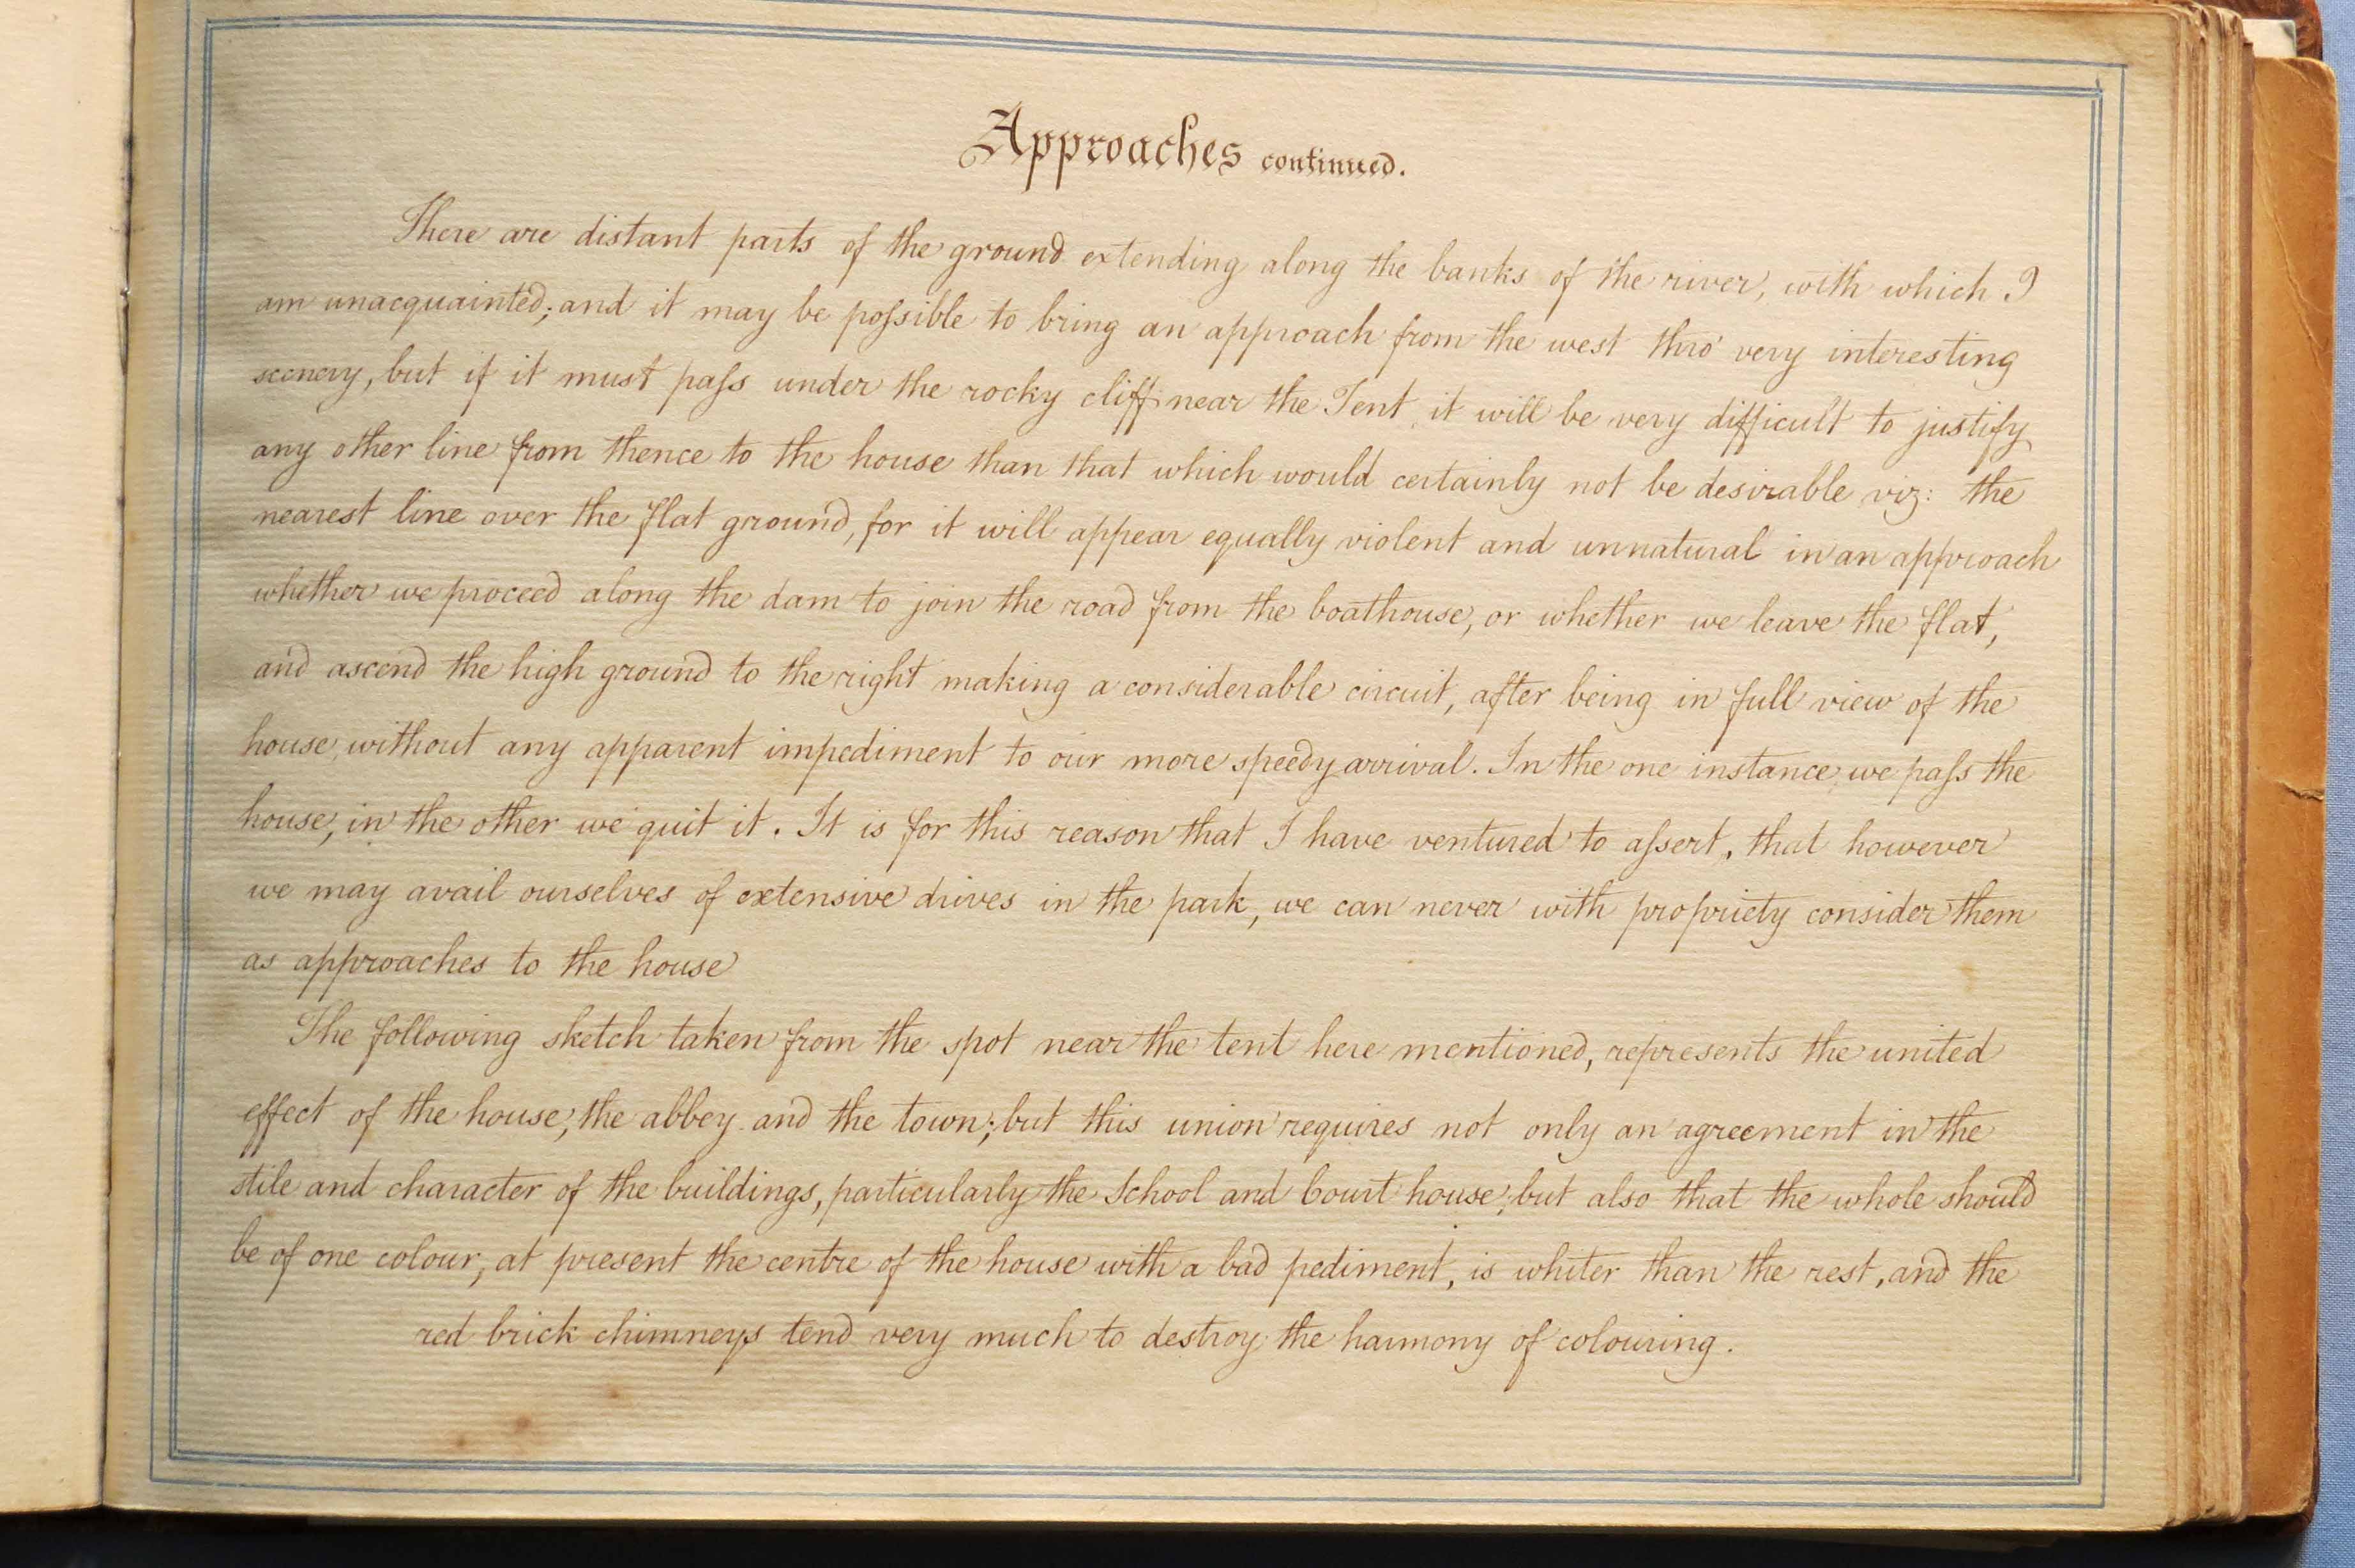 Approaches continued.
There are distant parts of the ground extending along the banks of the river, with which I
am unacquainted; and it may be poſsible to bring an approach from the west thro' very interesting
scenery, but if it must paſs under the rocky cliff near the Tent, it will be very difficult to justify
any other line from thence to the house than that which would certainly not be desirable viz: the
nearest line over the flat ground, for it will appear equally violent and unnatural in an approach
whether we proceed along the dam to join the road from the boathouse, or whether we leave the flat,
and ascend the high ground to the right making a considerable circuit, after being in full view of the
house, without any apparent impediment to our more speedy arrival. In the one instance, we paſs the
house, in the other we quit it. It is for this reason that I have ventured to aſsert, that however
we may avail ourselves of extensive drives in the park, we can never with propriety consider them
as approaches to the house
The following sketch taken from the spot near the tent here mentioned, represents the united
effect of the house, the abbey and the town; but this union requires not only an agreement in the
stile and character of the buildings, particularly the School and Court house, but also that the whole should
be of one colour, at present the centre of the house with a bad pediment, is whiter than the rest, and the
red brick chimneys tend very much to destroy the harmony of colouring.